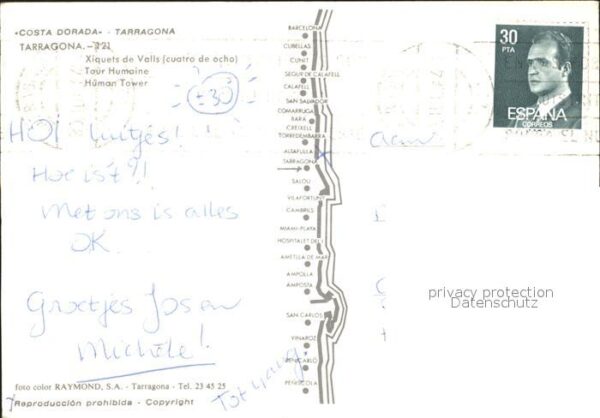 «COSTA DORADA» - TARRAGONA
TARRAGONA. - 121
Xiquets de Valls (cuatro de ocho)
Tour Humaine
Human Tower
± 30°
HOI luitjes!
Hoe ist?!
Met ons is alles
OK.
Groetjes Jos en
Michèle!
foto color RAYMOND, S.A. - Tarragona - Tel. 23 45 25
Reproducción prohibida - Copyright
BARCELONA
CUBELLAS
CUNIT
SEGUR DE CALAFELL
CALAFELL
SAN SALVADOR
COMARRUGA
BARA
CREIXELL
TORREDEMBARRA
ALTAFULLA
TARRAGONA
SALOU
VILAFORTUNY
CAMBRILS
MIAMI-PLAYA
HOSPITALET DEL I.
AMETLLA DE MAR
AMPOLLA
AMPOSTA
SAN CARLOS
VINAROZ
BENICARLO
PEÑISCOLA
Tot
aan
30
PTA
ESPAÑA
CORREOS
privacy protection
Datenschutz